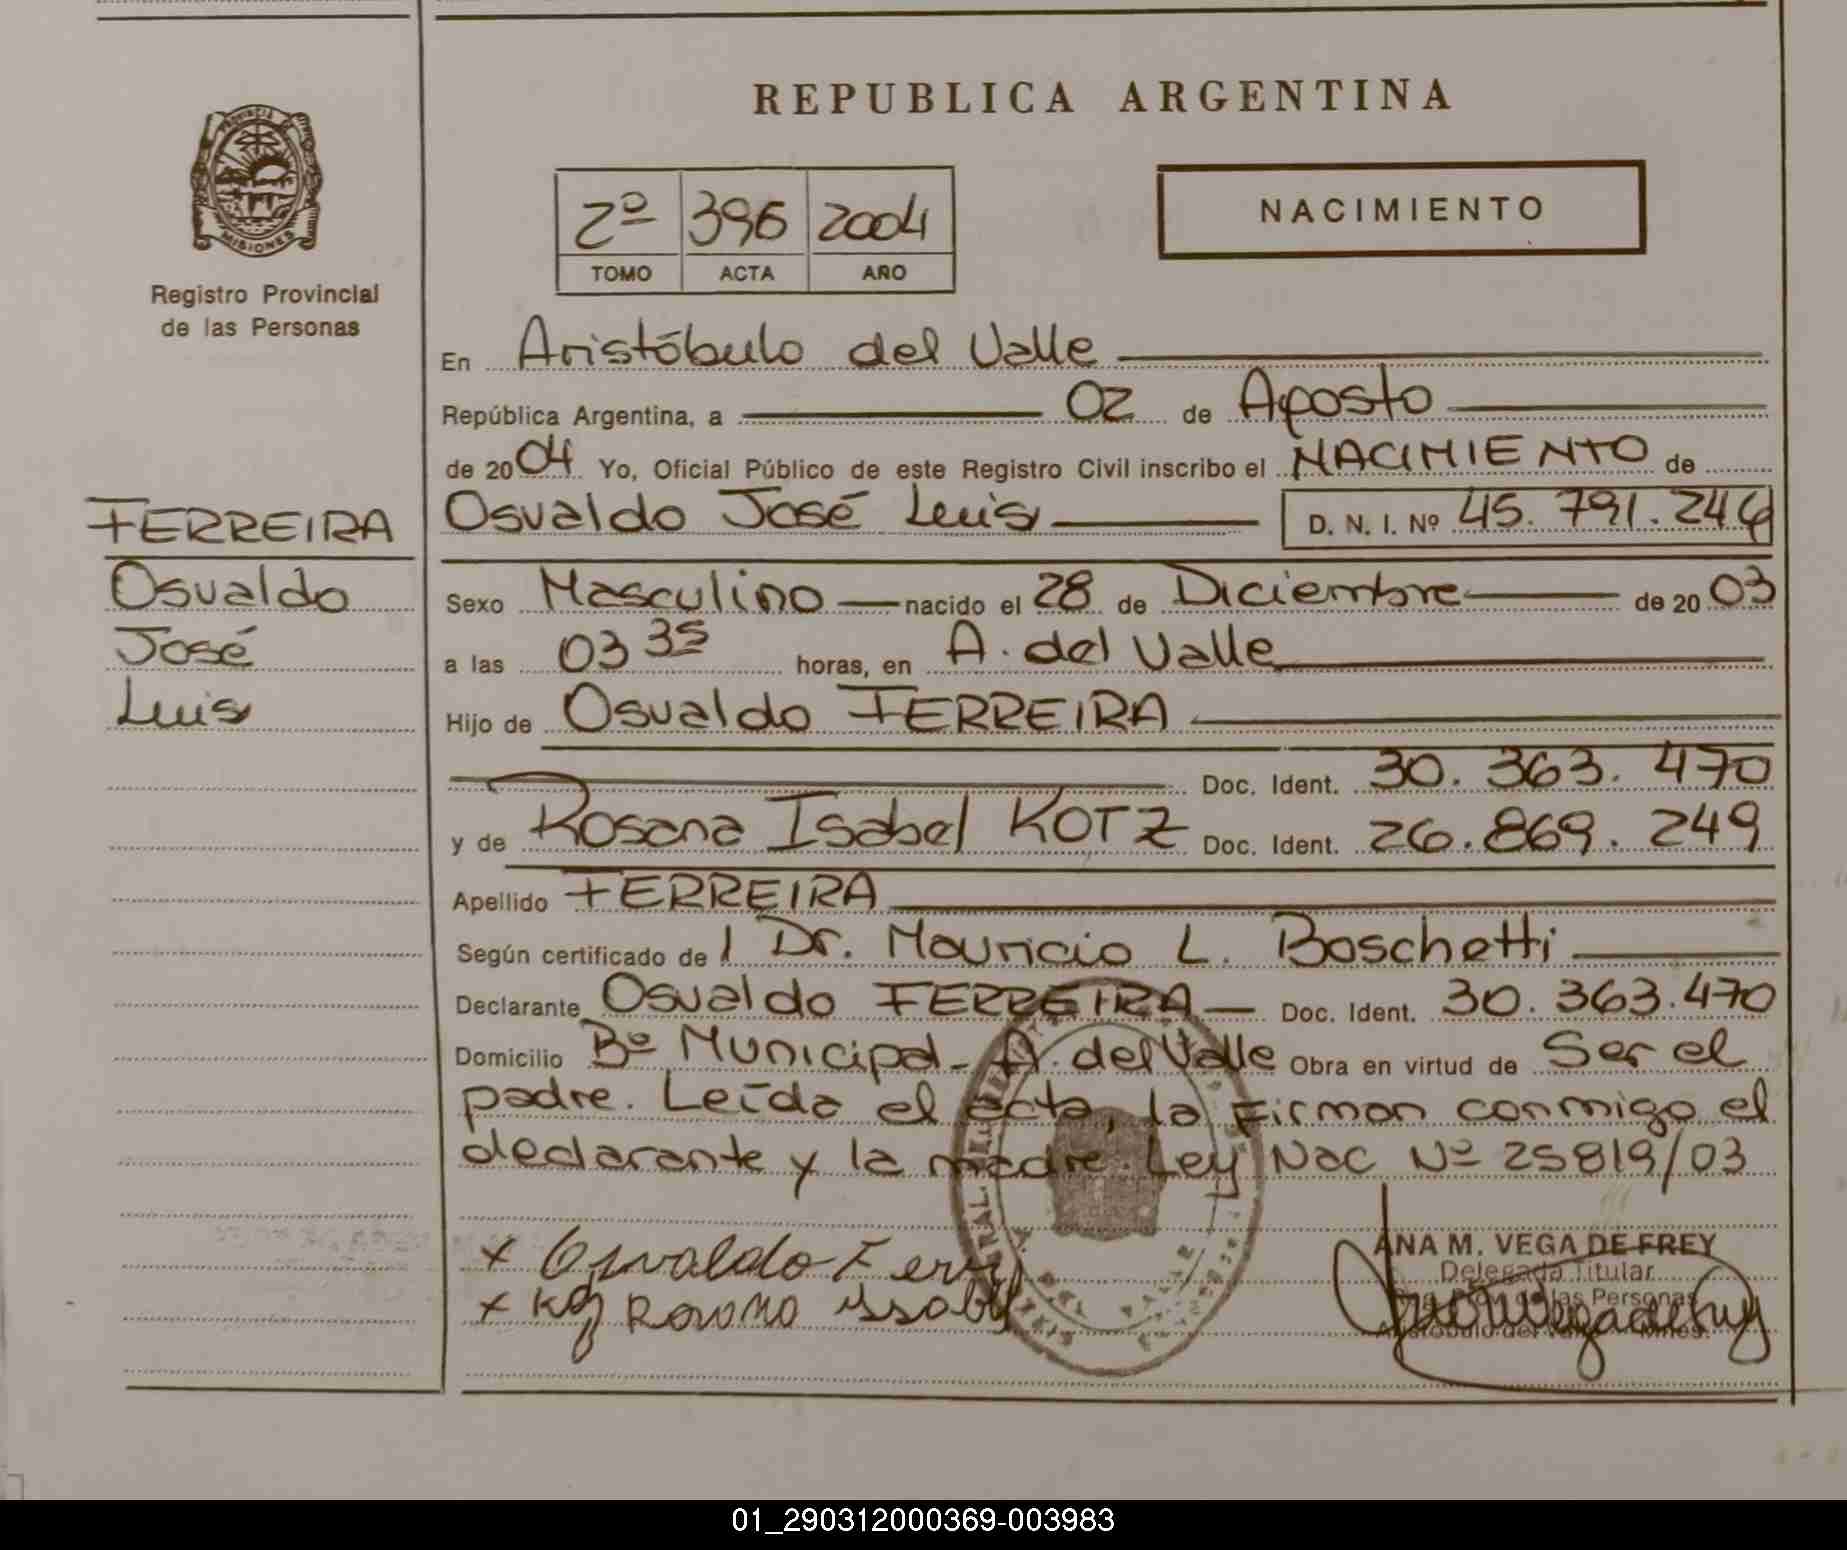 REPUBLICA ARGENTINA
PROVINCIA DE
MISIONES
Registro Provincial
de las Personas
2º 396 2004
TOMO ACTA AÑO
NACIMIENTO
En Aristóbulo del Valle
República Argentina, a 02 de Agosto
de 2004 Yo, Oficial Público de este Registro Civil inscribo el NACIMIENTO de
FERREIRA
Osvaldo
José
Luis
Osvaldo José Luis D. N. I. Nº 45.791.244
Sexo Masculino nacido el 28 de Diciembre de 2003
a las 03 35 horas, en A. del Valle
Hijo de Osvaldo FERREIRA
Doc. Ident. 30.363.470
y de Rosana Isabel KOTZ Doc. Ident. 26.869.249
Apellido FERREIRA
Según certificado de l Dr. Mauricio L. Boschetti
Declarante Osvaldo FERREIRA Doc. Ident. 30.363.470
Domicilio Bº Municipal - A. del Valle Obra en virtud de Ser el
padre. Leída el acta, la firman conmigo el
declarante y la madre. Ley Nac Nº 25819/03
x Osvaldo Ferr
x Rosana Issabel
ANA M. VEGA DE FREY
Delegada Titular
Reg. Prov. de las Personas
Aristóbulo del Valle - Mnes.
DEL VALLE
01_290312000369-003983